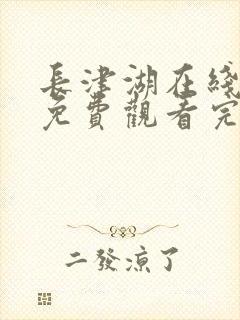 長津湖在綫
免費觀看完
二發涼了